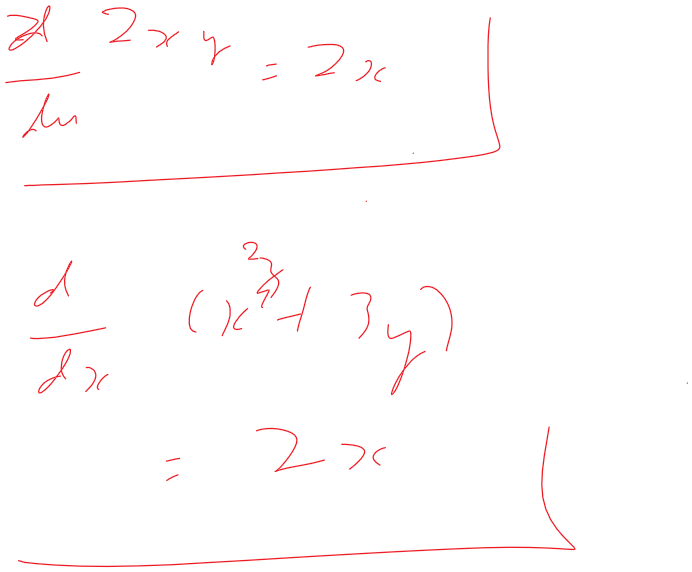 d/dy 2xy = 2x
d/dx (x² + 3y)
= 2x